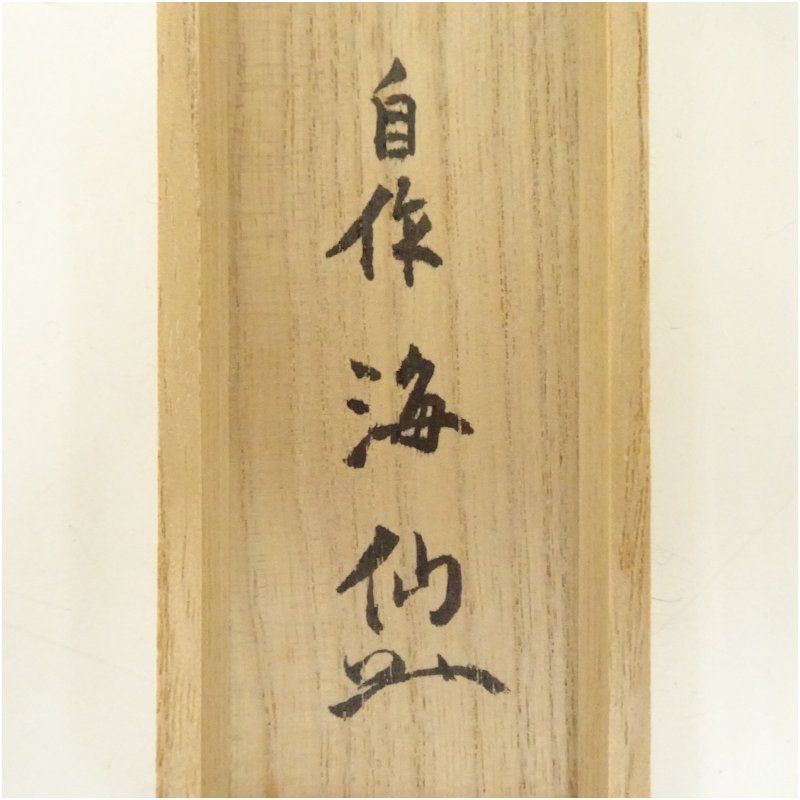 自作 海仙